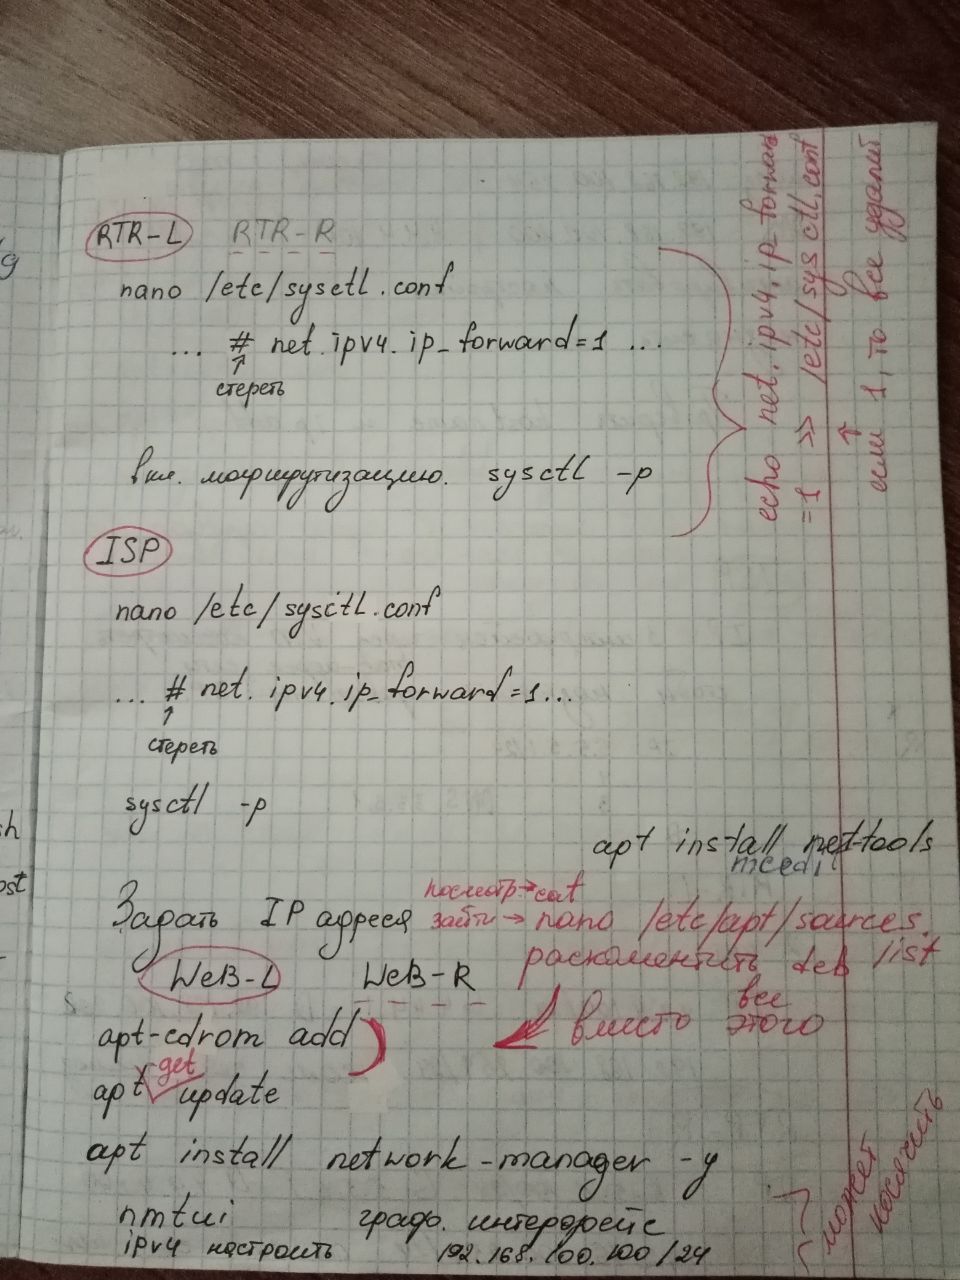 RTR-L RTR-R
nano /etc/sysctl.conf
... # net.ipv4.ip_forward=1 ...
↑
стереть
вкл. маршрутизацию. sysctl -p
echo net.ipv4.ip_forward
=1 >> /etc/sysctl.conf
↑
если 1, то все удалит
ISP
nano /etc/sysctl.conf
... # net.ipv4.ip_forward=1...
↑
стереть
sysctl -p
apt install net-tools
mcedit
посмотр→cat
Задать IP адреса зайти → nano /etc/apt/sources.
list
раскоментить deb
WeB-L WeB-R
все
вместо этого
apt-cdrom add
get
apt update
apt install network-manager -y
nmtui граф. интерфейс
ipv4 настроить 192.168.100.100/24
может
косячить